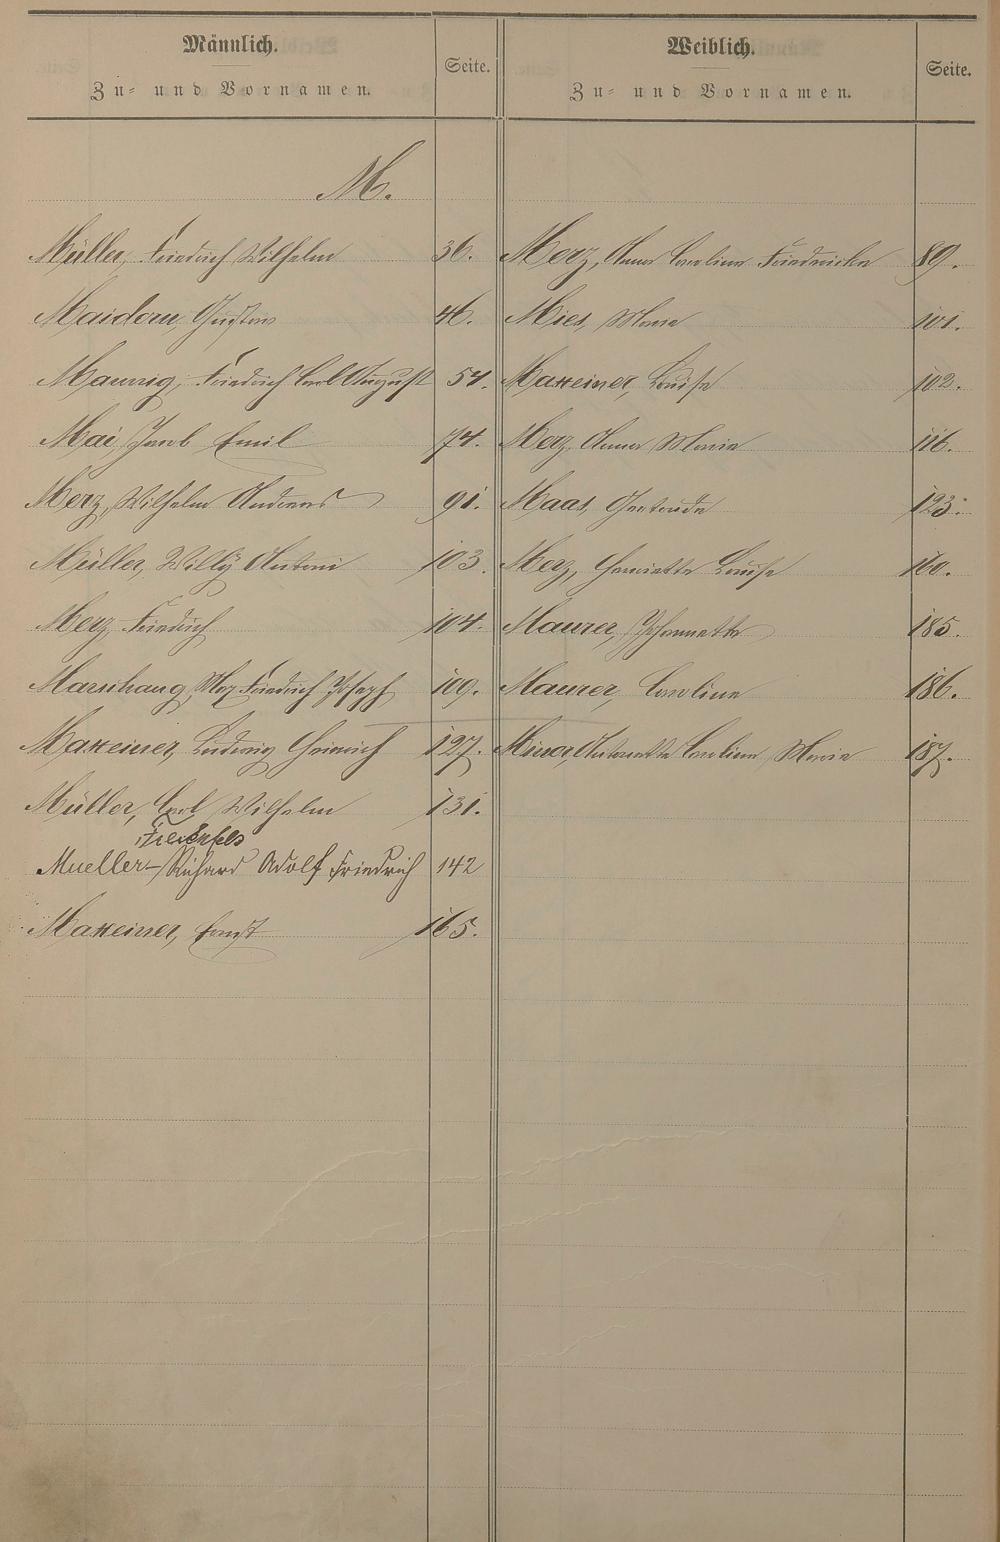 Männlich.
Zu- und Vornamen.
Seite.
Weiblich.
Zu- und Vornamen.
Seite.
M.
Müller, Friedrich Wilhelm 36.
Maidorn, Gustav 46.
Friedrich Carl August 54.
Mai, Jacob Emil 74.
Merz, Wilhelm Andreas 91.
Müller, Willy Anton 103.
Merz, Friedrich 104.
Marschang, Max Friedrich Joseph 109.
Maxeiner, Ludwig Heinrich 127.
Müller, Carl Wilhelm 131.
Freienfels
Mueller- Richard Adolf Friedrich 142
Maxeiner, Ernst 165.
Merz, Anna Caroline Friedericke 89.
Mies, Maria 101.
Maxeiner, Louise 102.
Merz, Anna Maria 116.
Maas, Gertrude 123.
Merz, Henriette Louise 160.
Maurer, Johannette 185.
Maurer, Caroline 186.
Minor, Antonette Caroline Maria 187.